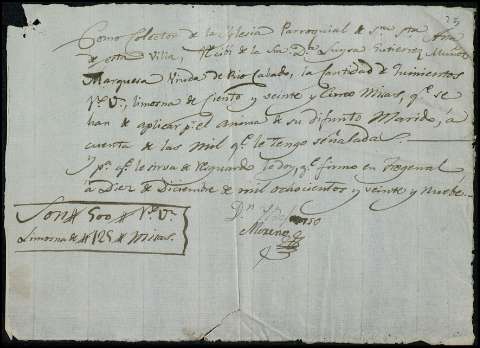 25
Como Colector de la Yglesia Parroquial de Sra. Sta. Ana
de esta Villa, Recibi de la Sra. Da. Gutierrez Muñoz
Marquesa Viuda de Rio Cabado, la Cantidad de quinientos
rs. Vn., limosna de Ciento y veinte y Cinco Misas, qe. se
han de aplicar pr. el Anima de su difunto Marido, a
cuenta de las Mil qe. le tengo señalada.
Y pa. qe. le sirva de resguardo le doy, qe. firmo en Fregenal
a Diez de Diciembre de mil ochocientos y veinte y nuebe.
Son # 500 # rs. Vn.
Limosna de # 125 # Misas.
Dn.
Moreno